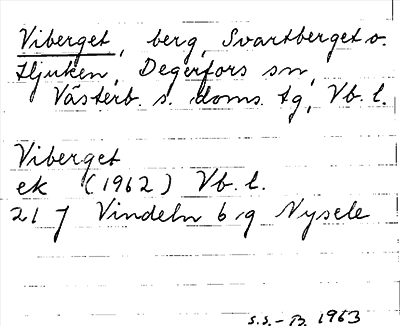 Viberget, berg, Svartberget o.
Hjuken, Degerfors sn,
Västerb. s. doms. tg, Vb. l.
Viberget
ek (1962) Vb. l.
21 7 Vindeln 6 g Nysele
S.S. - B. 1963